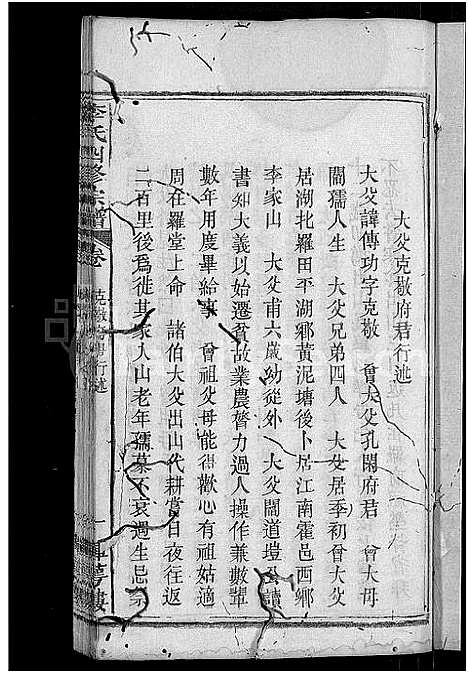 大父克敬府君行述
大父諱傳功字克敬 曾大父孔閑府君 曾大母
閻孺人生 大父兄弟四人 大父居季初曾大父
居湖北羅田平湖鄉黃泥塘後卜居江南霍邑西鄉
李家山 大父甫六歲幼從外 大父閻道塏公讀
書知大義以始遷貧故業農膂力過人操作兼數輩
數年用度畢給事 曾祖父母能得歡心有祖姑適
周在羅堂上命 諸伯大父出山代耕嘗日夜往返
二百里後爲徙其家入山老年孺慕不衰遇生忌祭
李氏四修宗譜
卷
克敬府君行述
一